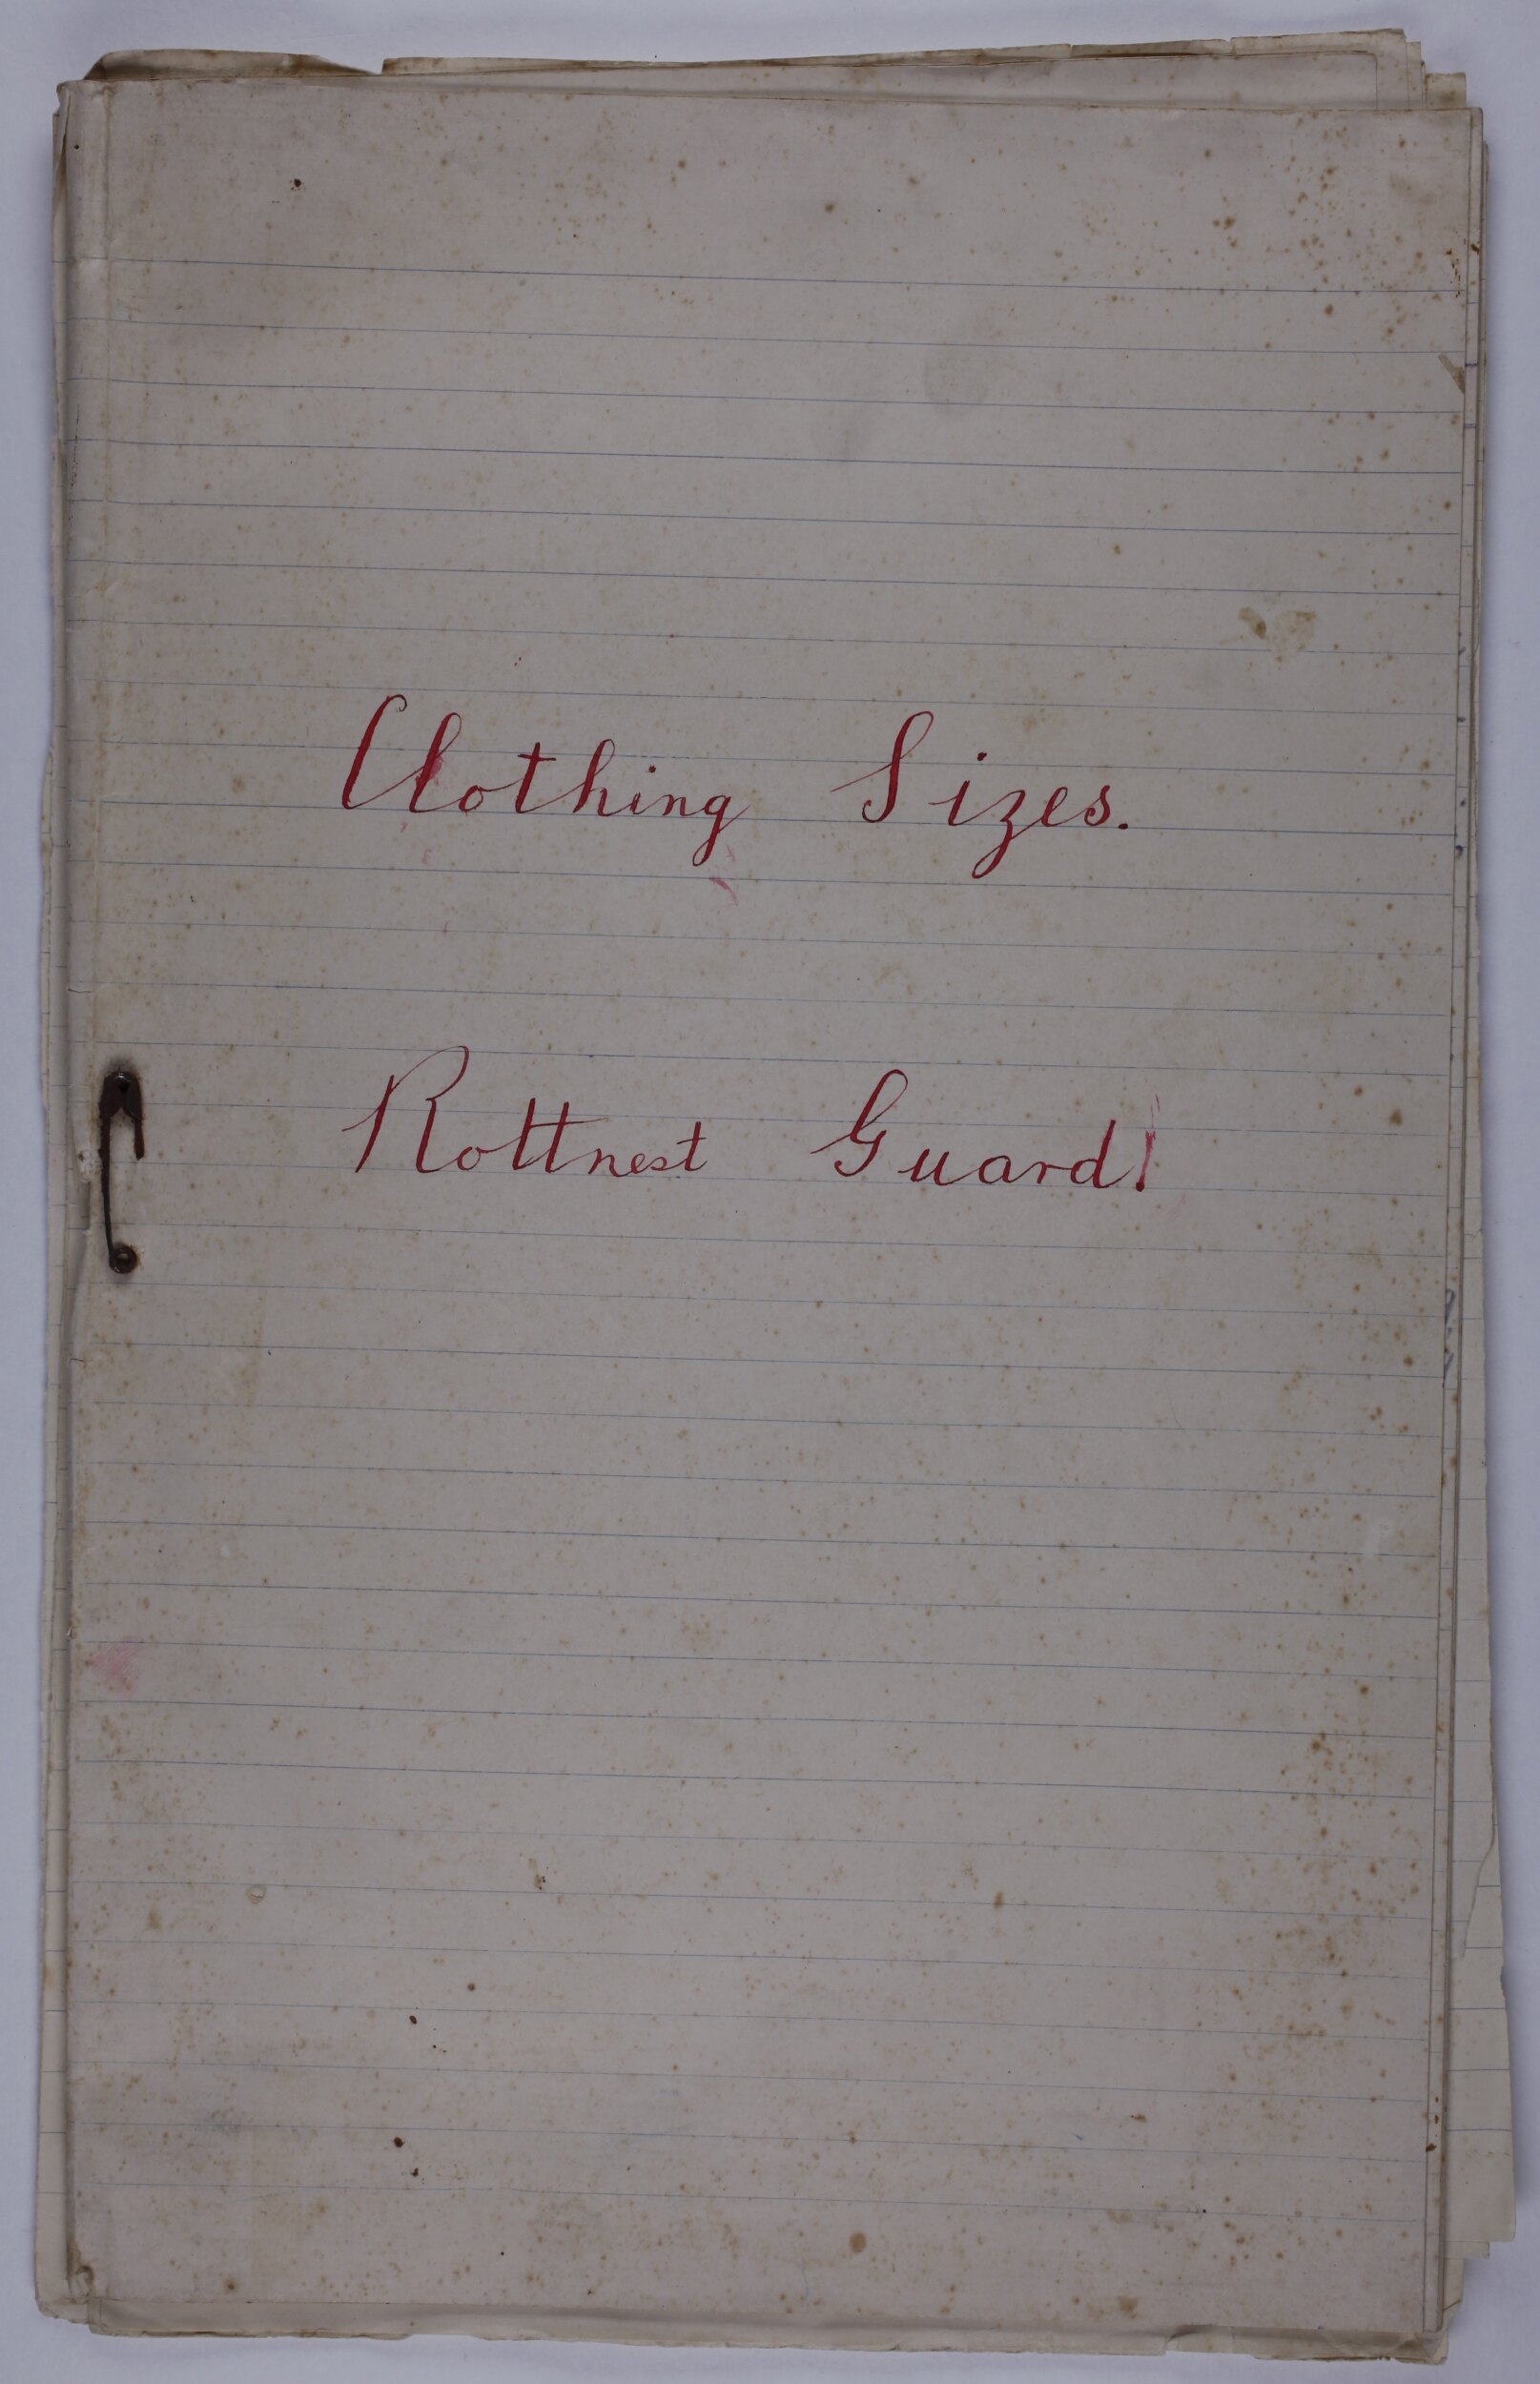 Clothing Sizes.
Rottnest Guard!